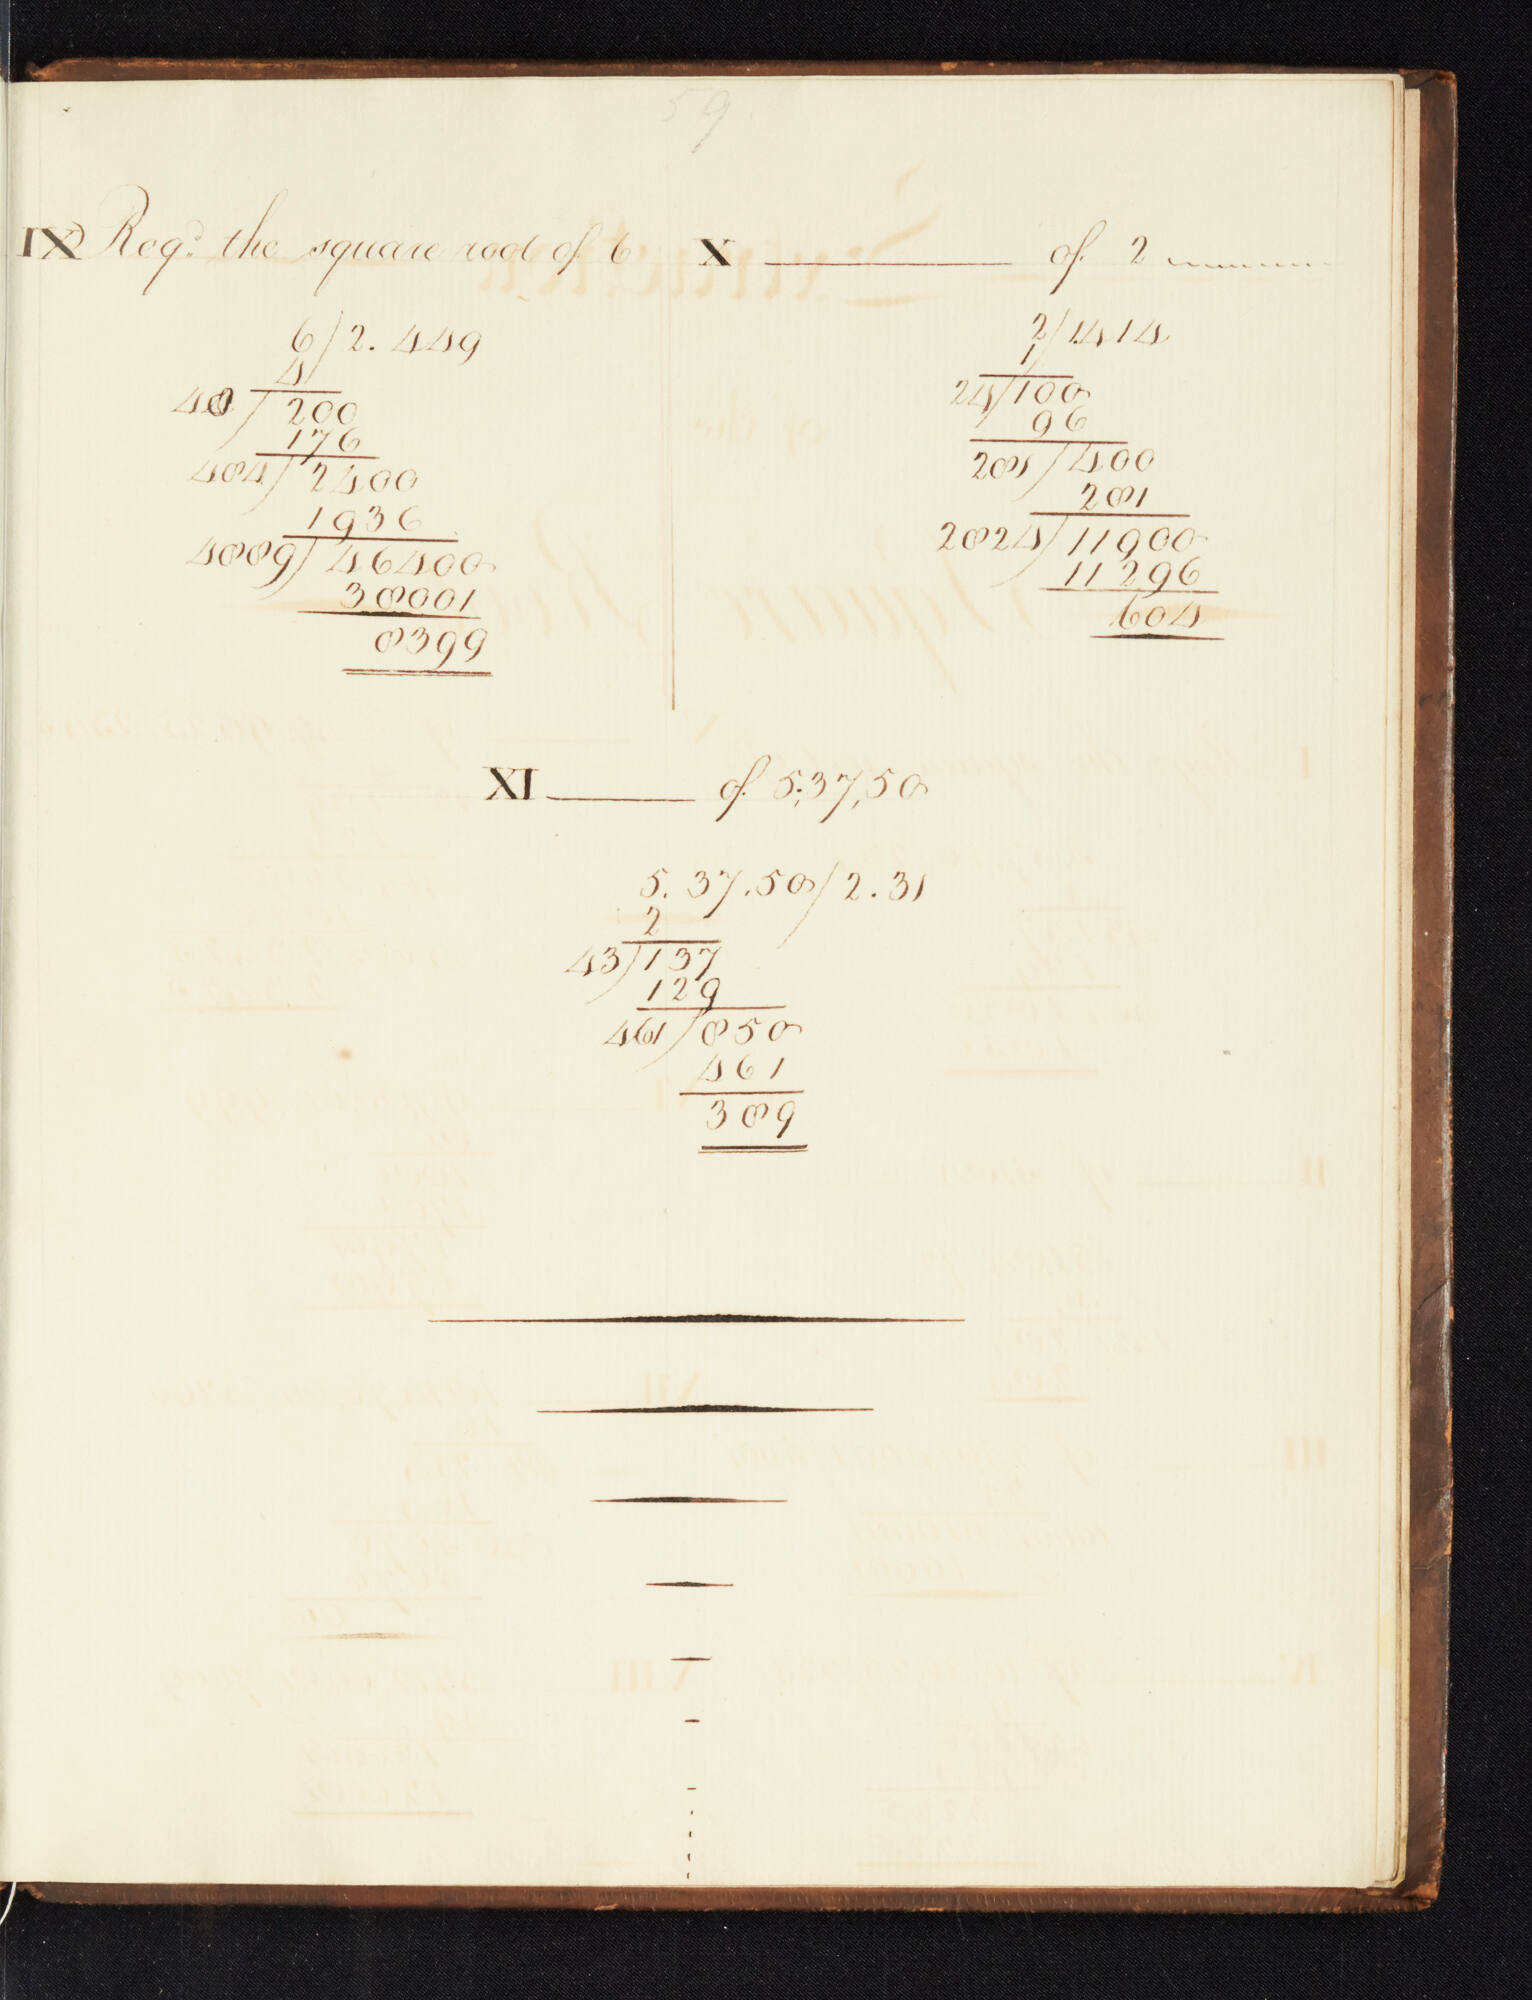 59
IX) Reqd. the square root of 6
6/2.449
4
48/200
176
484/2400
1936
4889/46400
38001
8399
X ______ of 2
2/1.414
1
24/100
96
281/400
281
2824/11900
11296
604
XI ______ of 5,37,50
5.37.50/2.31
2
43/137
129
461/850
461
389